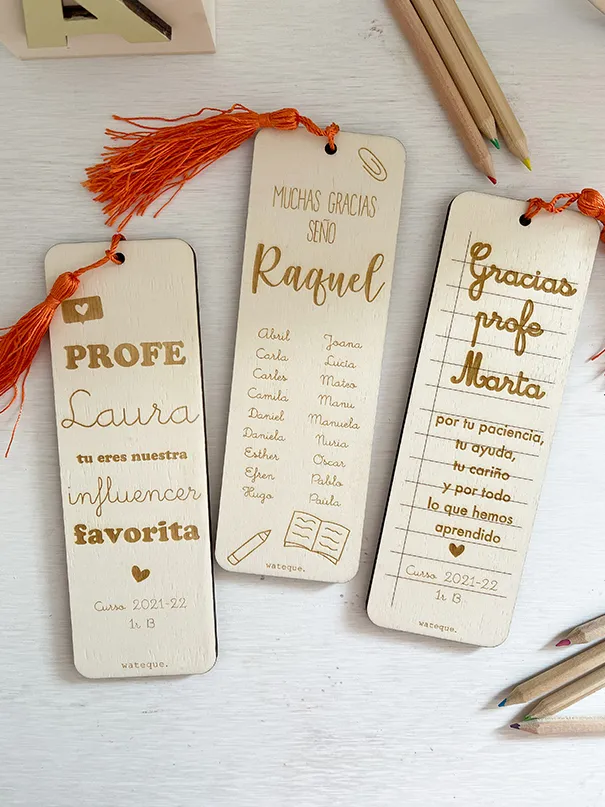 PROFE
Laura
tu eres nuestra
influencer
favorita
Curso 2021-22
1r B
wateque.
MUCHAS GRACIAS
SEÑO
Raquel
Abril
Carla
Carles
Camila
Daniel
Daniela
Esther
Efren
Hugo
Joana
Lucía
Mateo
Manu
Manuela
Nuria
Oscar
Pablo
Paula
wateque.
Gracias
profe
Marta
por tu paciencia,
tu ayuda,
tu cariño
y por todo
lo que hemos
aprendido
Curso 2021-22
1r B
wateque.